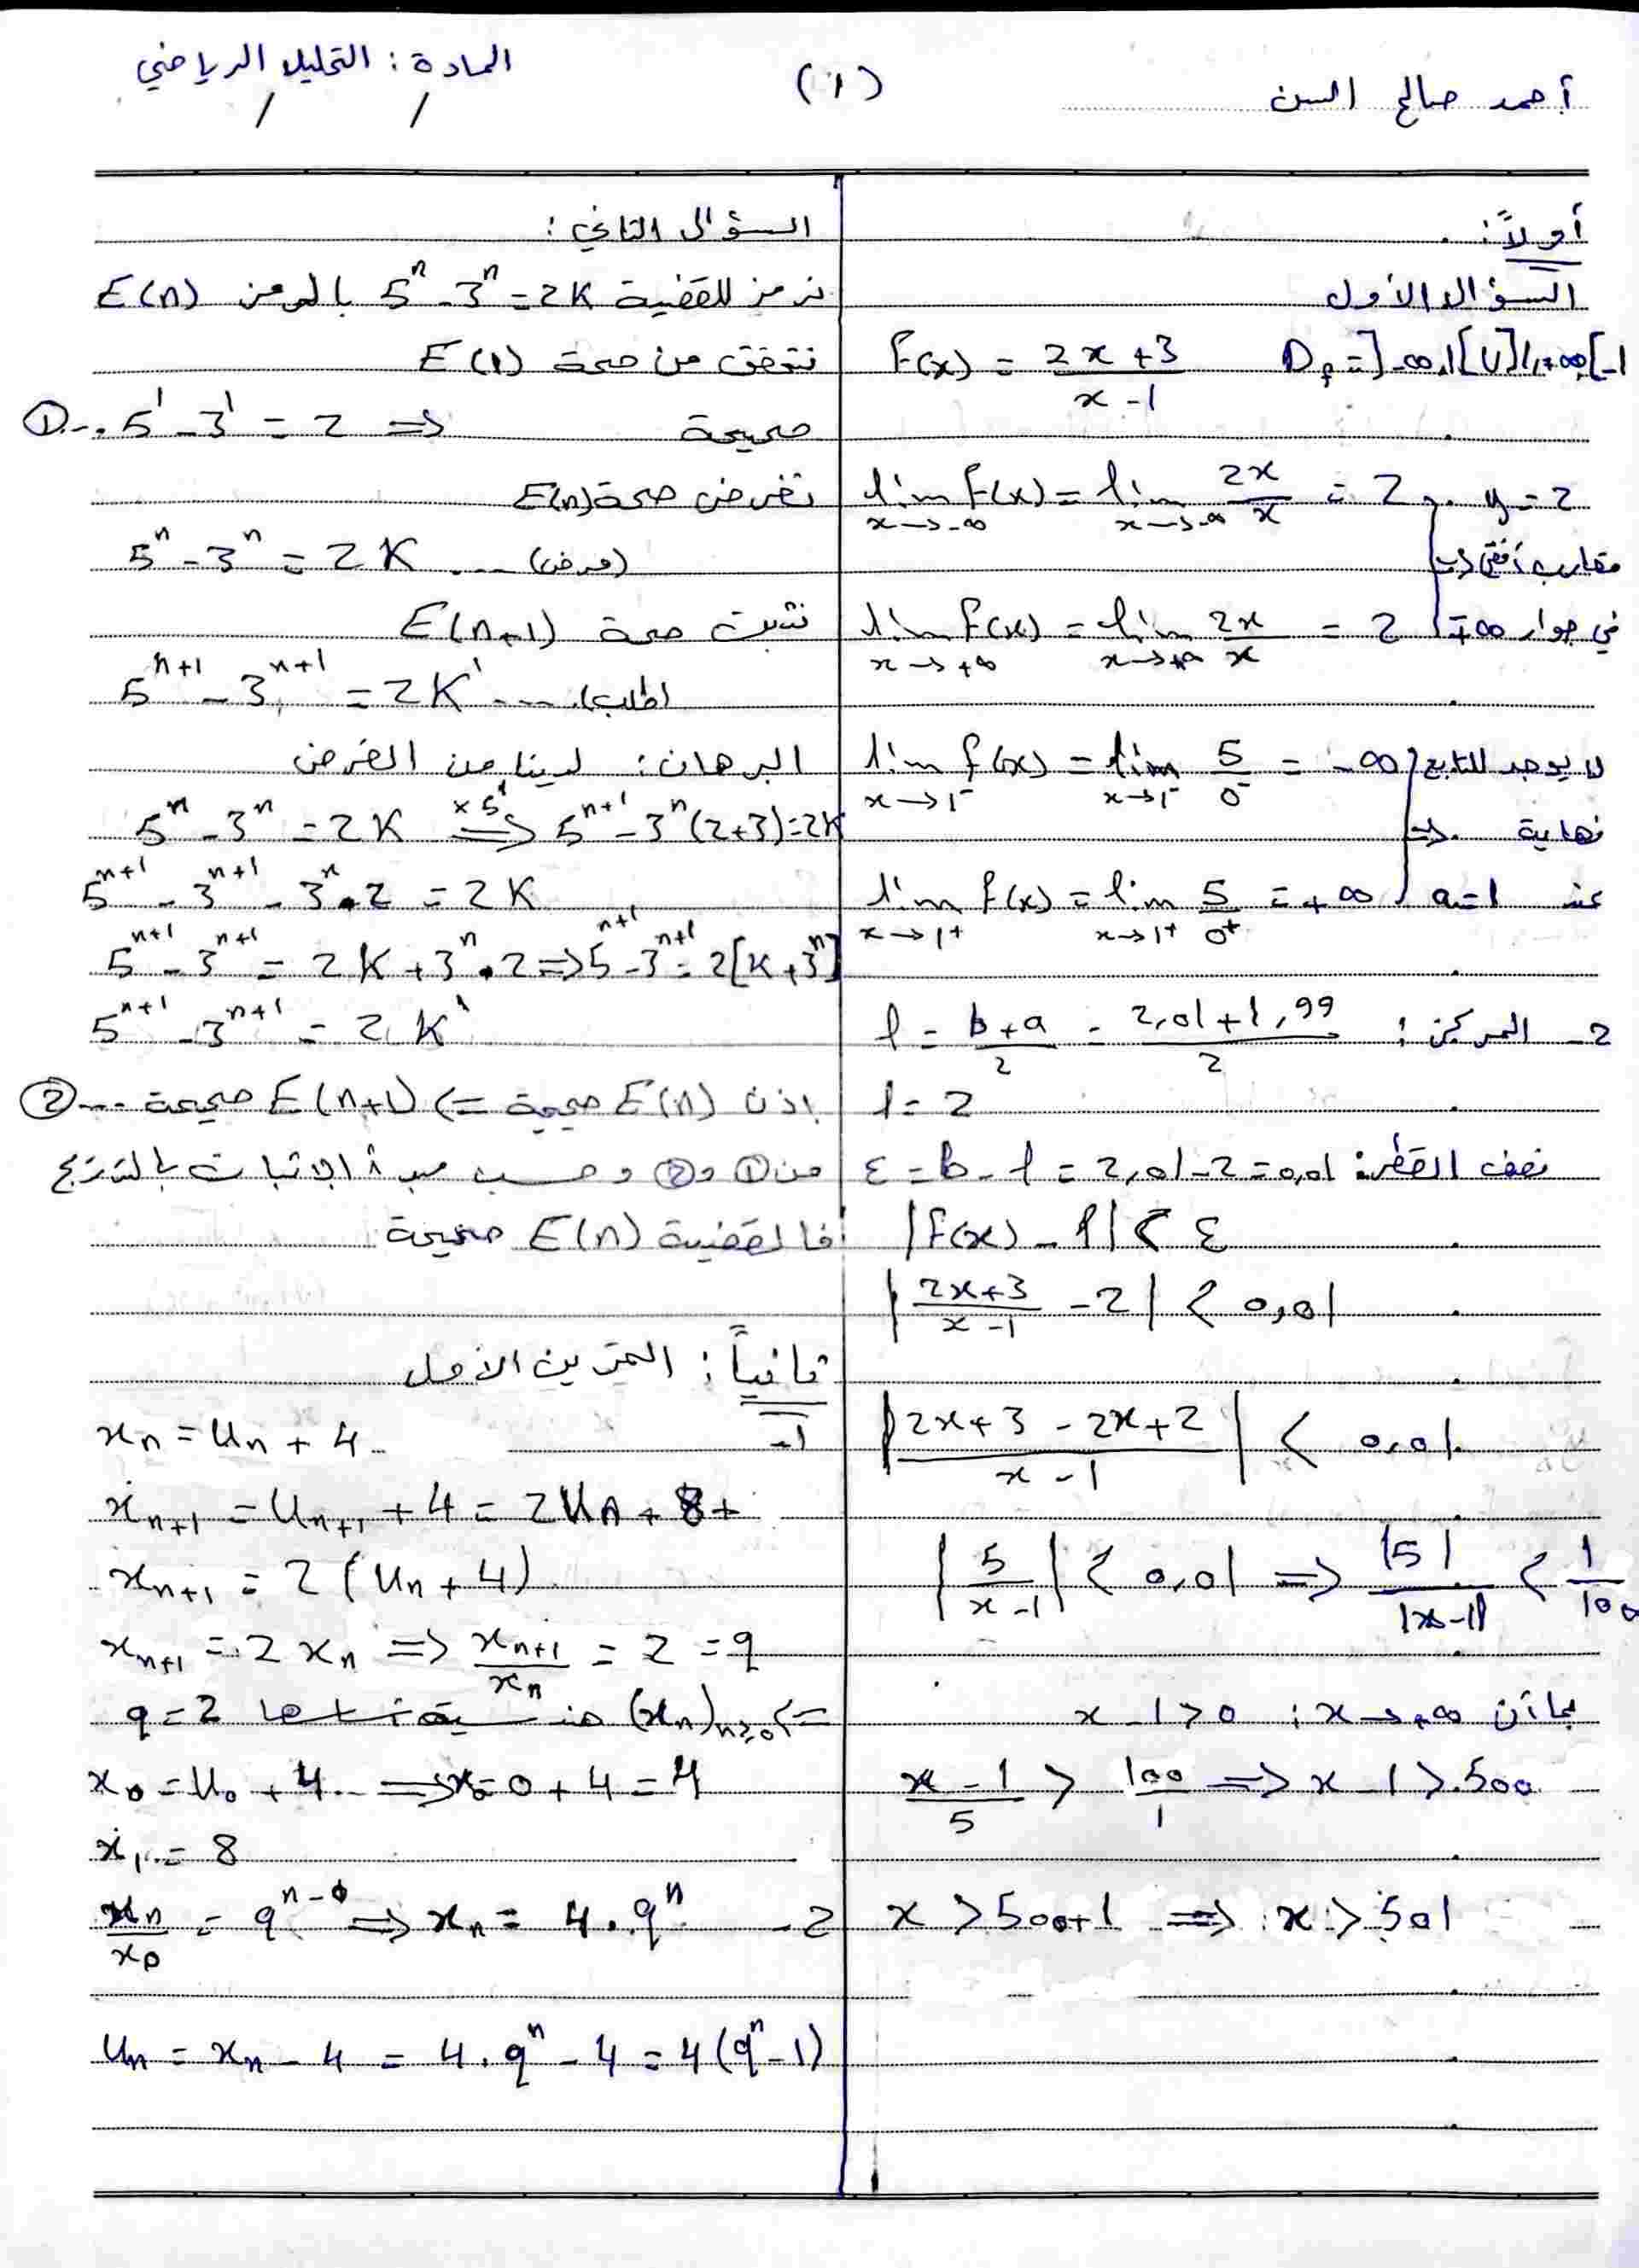 أحمد صالح السن
(١)
المادة: التحليل الرياضي
/ /
أولاً:
السؤال الأول
1- f(x) = (2x+3)/(x-1) D_f = ]-∞,1[ ∪ ]1,+∞[
lim_{x→-∞} f(x) = lim_{x→-∞} 2x/x = 2 y=2
مقارب أفقي
lim_{x→+∞} f(x) = lim_{x→+∞} 2x/x = 2 في جوار ∓∞
lim_{x→1⁻} f(x) = lim_{x→1⁻} 5/0⁻ = -∞ لا يوجد للتابع
نهاية ⇐
lim_{x→1⁺} f(x) = lim_{x→1⁺} 5/0⁺ = +∞ عند a=1
2- المركز: l = (b+a)/2 = (2,01+1,99)/2
l = 2
نصف القطر: ε = b - l = 2,01-2=0,01
|f(x) - l| < ε
|(2x+3)/(x-1) - 2| < 0,01
|(2x+3-2x+2)/(x-1)| < 0,01
|5/(x-1)| < 0,01 ⇒ |5|/|x-1| < 1/100
بما أن x→+∞ : x-1>0
(x-1)/5 > 100/1 ⇒ x-1 > 500
x > 500+1 ⇒ x > 501
السؤال الثاني:
نرمز للقضية 5ⁿ-3ⁿ=2K بالرمز E(n)
نتحقق من صحة E(1)
5¹-3¹ = 2 ⇒ صحيحة ...①
نفرض صحة E(n)
5ⁿ-3ⁿ = 2K ....(فرض)
نثبت صحة E(n+1)
5ⁿ⁺¹-3ⁿ⁺¹ = 2K' ....(طلب)
البرهان: لدينا من الفرض
5ⁿ-3ⁿ = 2K ⇒(×5¹) 5ⁿ⁺¹-3ⁿ(2+3)=2K
5ⁿ⁺¹-3ⁿ⁺¹-3ⁿ•2 = 2K
5ⁿ⁺¹-3ⁿ⁺¹ = 2K+3ⁿ•2 ⇒ 5ⁿ⁺¹-3ⁿ⁺¹=2[K+3ⁿ]
5ⁿ⁺¹-3ⁿ⁺¹ = 2K'
إذن E(n) صحيحة ⇐ E(n+1) صحيحة ...②
من ① و② وحسب مبدأ الإثبات بالتدرج
فالقضية E(n) صحيحة
ثانياً: التمرين الأول
1- xₙ = uₙ + 4
xₙ₊₁ = uₙ₊₁ + 4 = 2uₙ + 8
xₙ₊₁ = 2(uₙ+4)
xₙ₊₁ = 2xₙ ⇒ xₙ₊₁/xₙ = 2 = q
⇐ (xₙ)ₙ≥₀ هندسية أساسها q=2
x₀ = u₀ + 4 ⇒ x₀ = 0+4 = 4
x₁ = 8
2- xₙ/x₀ = qⁿ⁻⁰ ⇒ xₙ = 4.qⁿ
uₙ = xₙ - 4 = 4.qⁿ - 4 = 4(qⁿ-1)